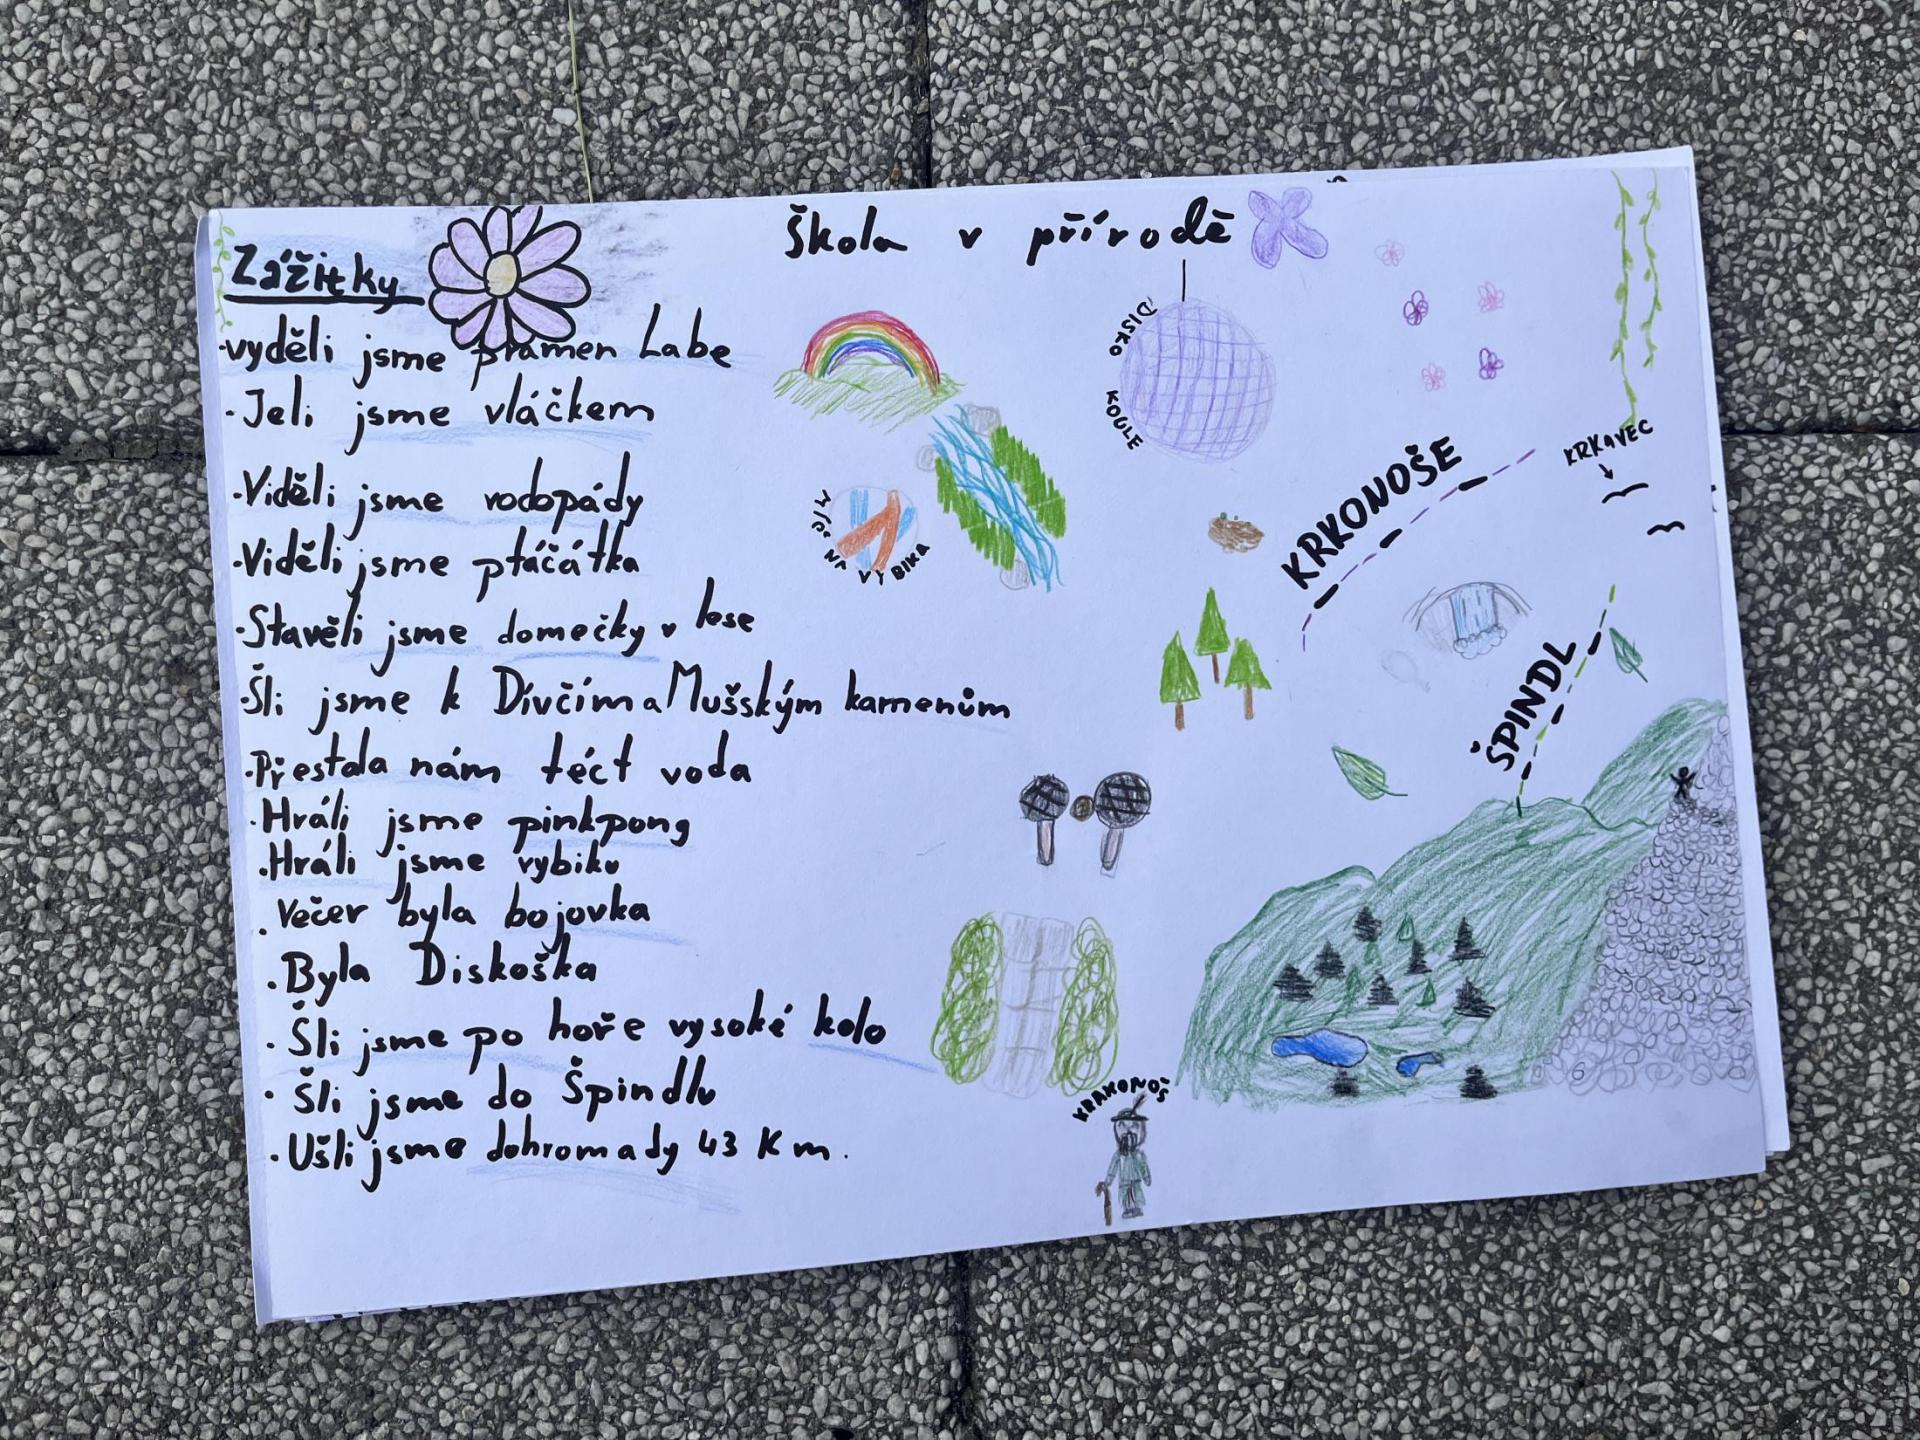 Škola v přírodě
Zážitky
·vyděli jsme pramen Labe
·Jeli jsme vláčkem
·Viděli jsme vodopády
·Viděli jsme ptáčátka
·Stavěli jsme domečky v lese
·Šli jsme k Dívčím a Mušským kamenům
·Přestala nám téct voda
·Hráli jsme pinkpong
·Hráli jsme vybiku
·Večer byla bojovka
·Byla Diskoška
·Šli jsme po hoře vysoké kolo
·Šli jsme do Špindlu
·Ušli jsme dohromady 43 Km.
DISKO KOULE
MÍČ NA VYBIKA
KRKONOŠE
KRKAVEC
ŠPINDL
KRAKONOŠ